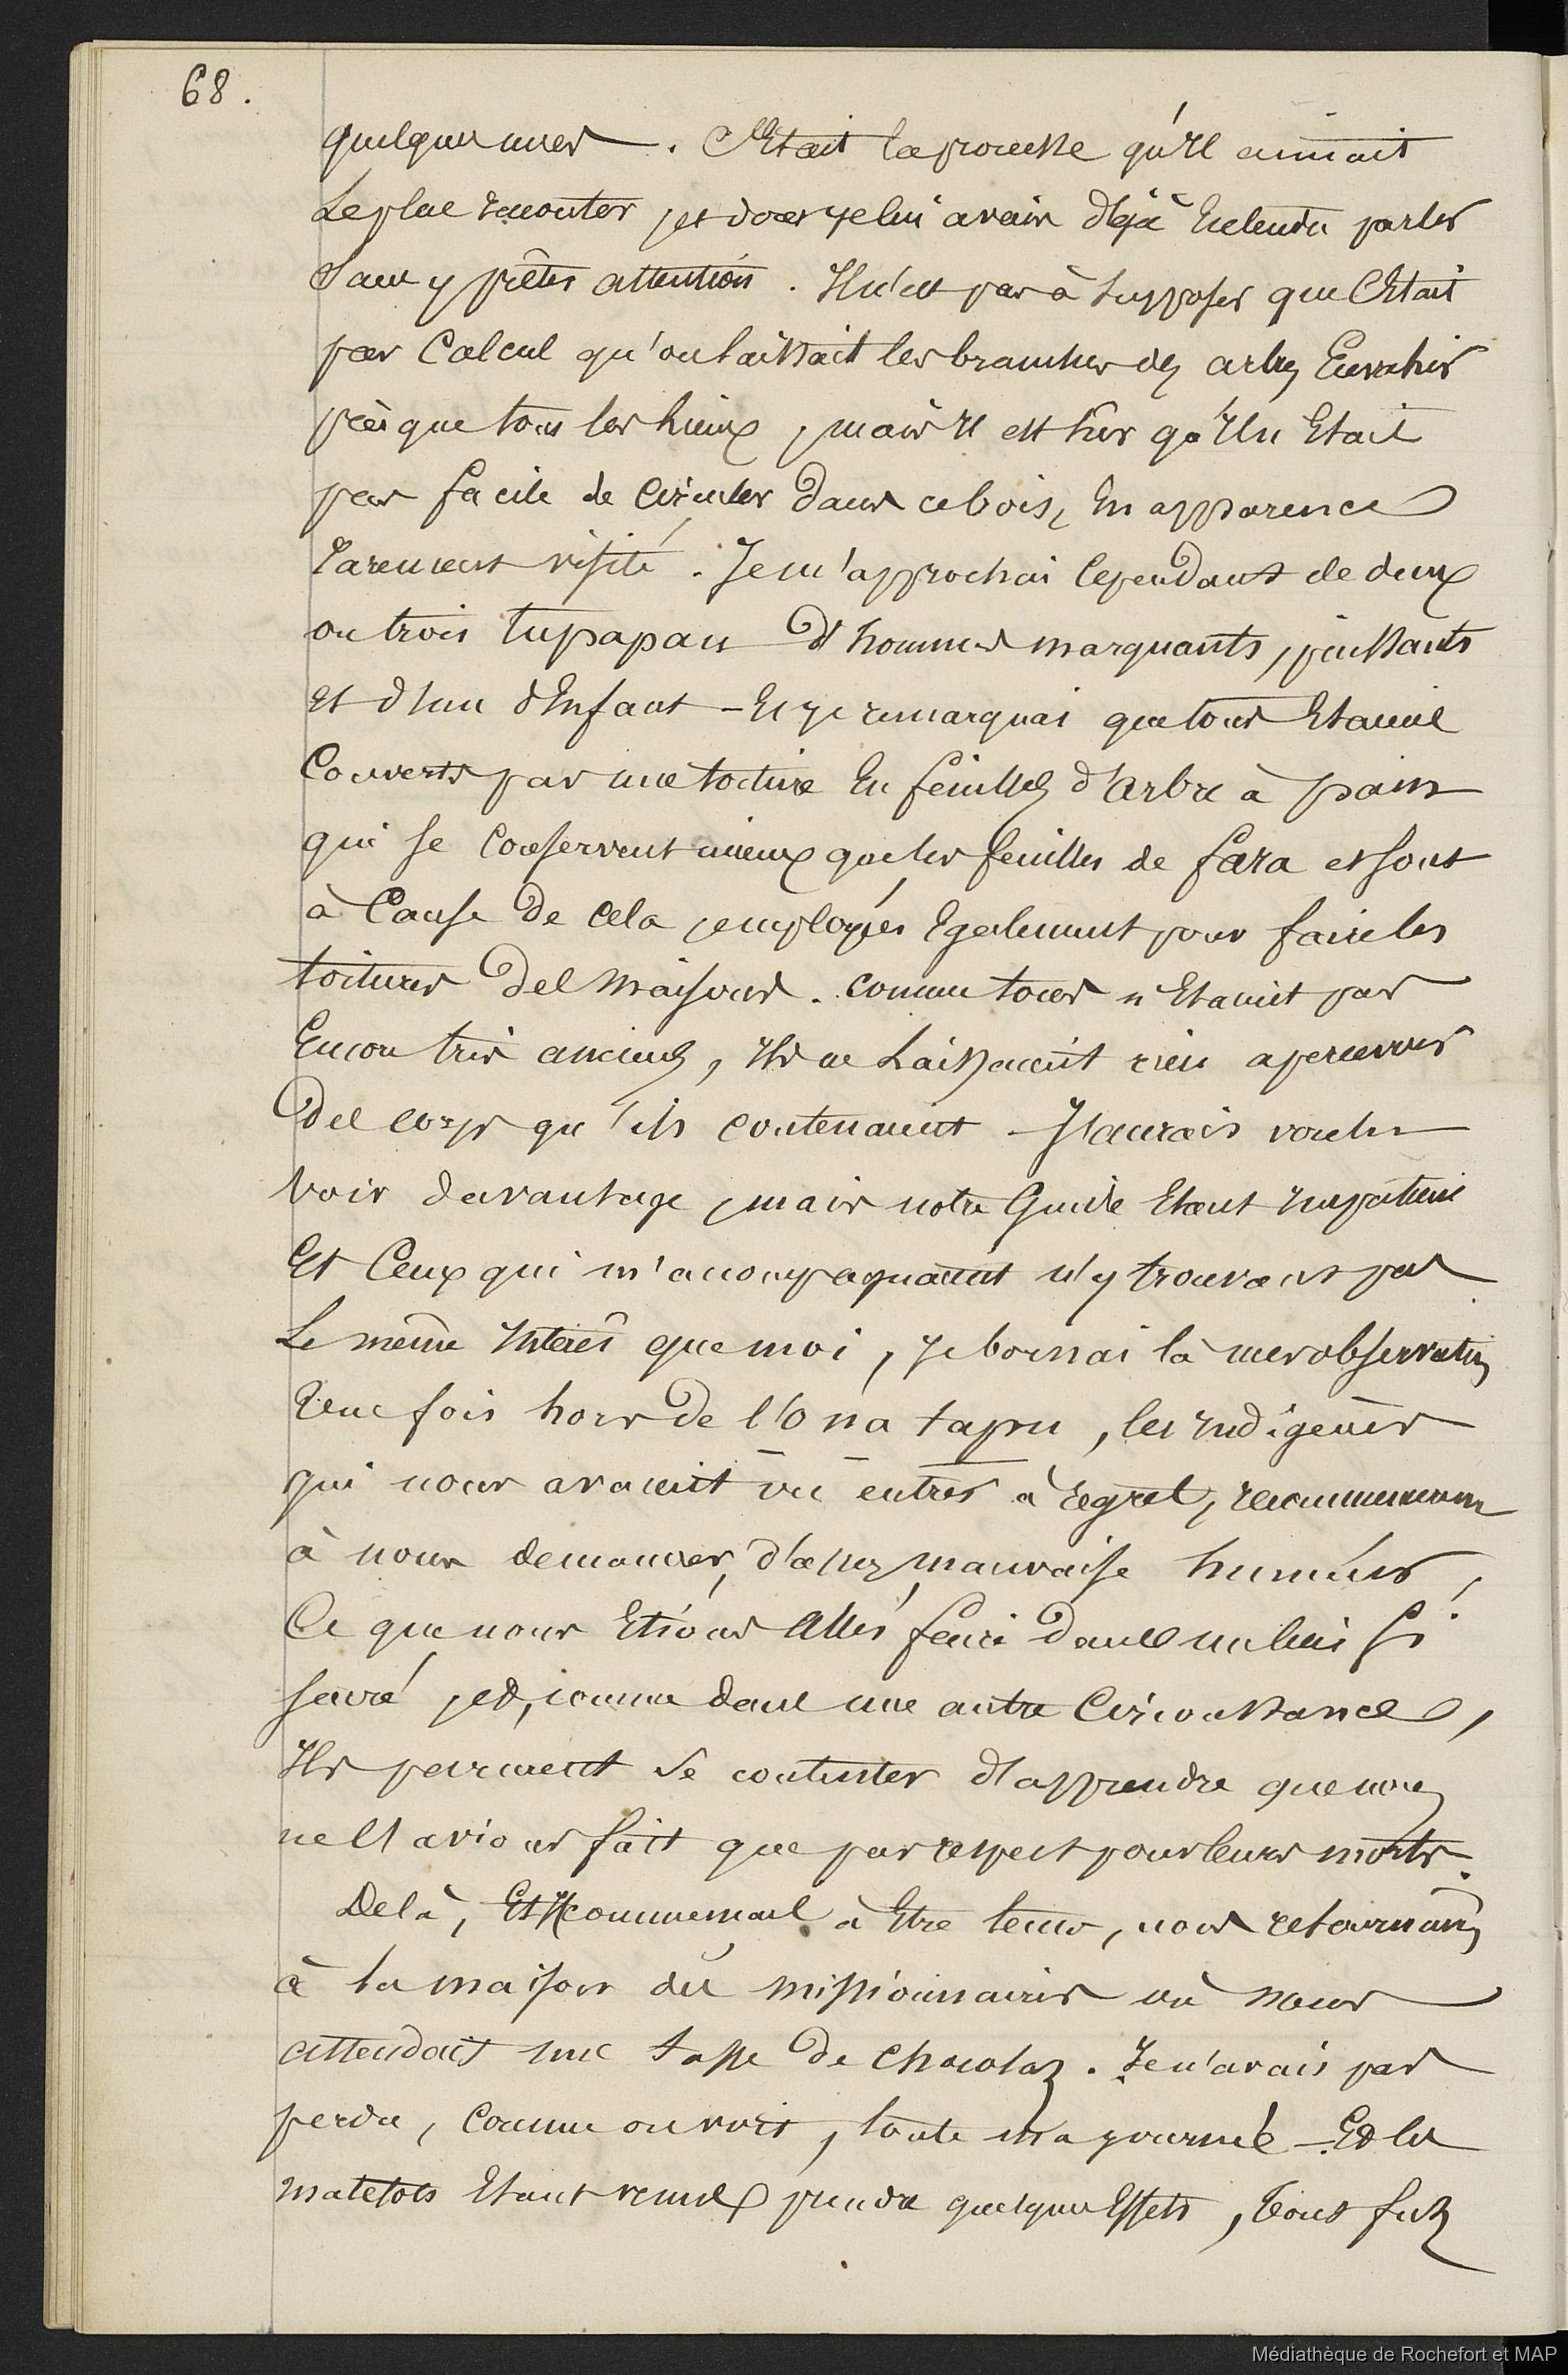 68.
quelques unes. C'était la prouesse qu'Il aimait
Le plus raconter, et dont je lui avais déjà Entendu parler
Sans y prêter attention. Il n'est pas à supposer que C'Etait
par Calcul qu'on laissait les branches des arbres Envahir
presque tous les lieux, mais Il est sûr qu'Il n'Etait
pas facile de Circuler dans ce bois, En apparence
rarement visité. Je m'approchai Cependant de deux
ou trois tupapau d'hommes marquants, puissants
et d'un d'Enfant - Et je remarquai que tous Etaient
Couverts par une toiture En feuilles d'arbre à pain
qui se Conservent mieux que les feuilles de fara et sont
à Cause de Cela, employées Egalement pour faire les
toitures Des Maisons. Comme tous n'Etaient pas
Encore très anciens, Ils ne Laissaient rien apercevoir
Des corps qu'ils Contenaient - J'aurais voulu
Voir davantage, mais notre Guide Etant Impatient
Et Ceux qui m'accompagnaient n'y trouvant pas
Le même Intérêt que moi, je bornai là mes observations
Une fois hors de l'Ona tapu, les Indigènes
qui nous avaient vu entrer à regret, recommencèrent
à nous demander, d'assez mauvaise humeur,
Ce que nous Etions Allés faire Dans un lieu si
sacré, et, comme dans une autre Circonstance,
Ils parurent se contenter d'apprendre que nous
ne l'avions fait que par respect pour leurs morts.
De là, Et commençant à Etre tems, nous retournames
à la maison des missionnaires où nous
attendait une tasse de Chocolat. Je n'avais pas
perdu, Comme on voit, toute ma journée - Et les
matelots Etant venus prendre quelques Effets, tout fut
Médiathèque de Rochefort et MAP